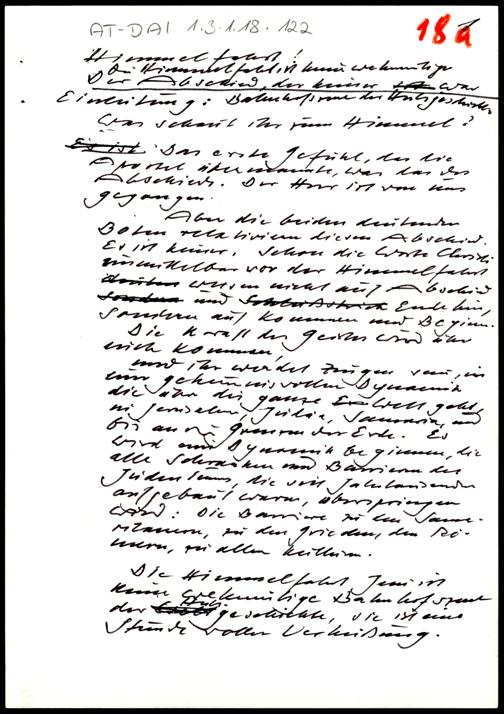 AT-DAI 1.3.1.18.122
18a
Himmelfahrt!
Die Himmelfahrt ist keine wehmütige
Der Abschied, der keiner war
Einleitung: Bahnhofszene der Heilsgeschichte
Was schaut ihr zum Himmel?
Es ist Das erste Gefühl, das die
Apostel übermannte, war das des
Abschieds. Der Herr ist von uns
gegangen.
Aber die beiden deutenden
Boten relativieren diesen Abschied.
Es ist keiner. Schon die Worte Christi
unmittelbar vor der Himmelfahrt
deuten weisen nicht auf Abschied
sondern und Ende hin,
sondern auf Kommen und Beginn.
Die Kraft des Geistes wird über
euch kommen,
und ihr werdet Zeugen sein, in
einer geheimnisvollen Dynamik
die über die ganze Welt geht,
in Jerusalem, Judäa, Samaria und
bis an die Grenzen der Erde. Es
wird eine Dynamik beginnen, die
alle Schranken und Barrieren des
Judentums, die seit Jahrtausenden
aufgebaut waren, überspringen
wird: Die Barriere zu den Sama-
ritanern, zu den Griechen, den Rö-
mern, zu allen Heiden.
Die Himmelfahrt Jesu ist
keine wehmütige Bahnhofszene
der Heilsgeschichte, sie ist eine
Stunde voller Verheißung.